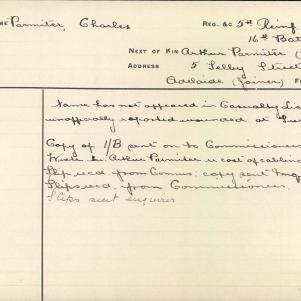 Parmiter, Charles
REG. &c 5th Reinf.
16th Bat
NEXT OF KIN Arthur Parmiter (
ADDRESS 5 Selby Street
Adelaide (Joiner)
Name has not appeared in Casualty Li
unofficially reported wounded at
Copy of I/B sent on to Commissioner
Wrote to Arthur Parmiter re cost of cabling
Slip recd. from Comms; copy sent
Slips recd. from Commissioner
Slips sent enquirer